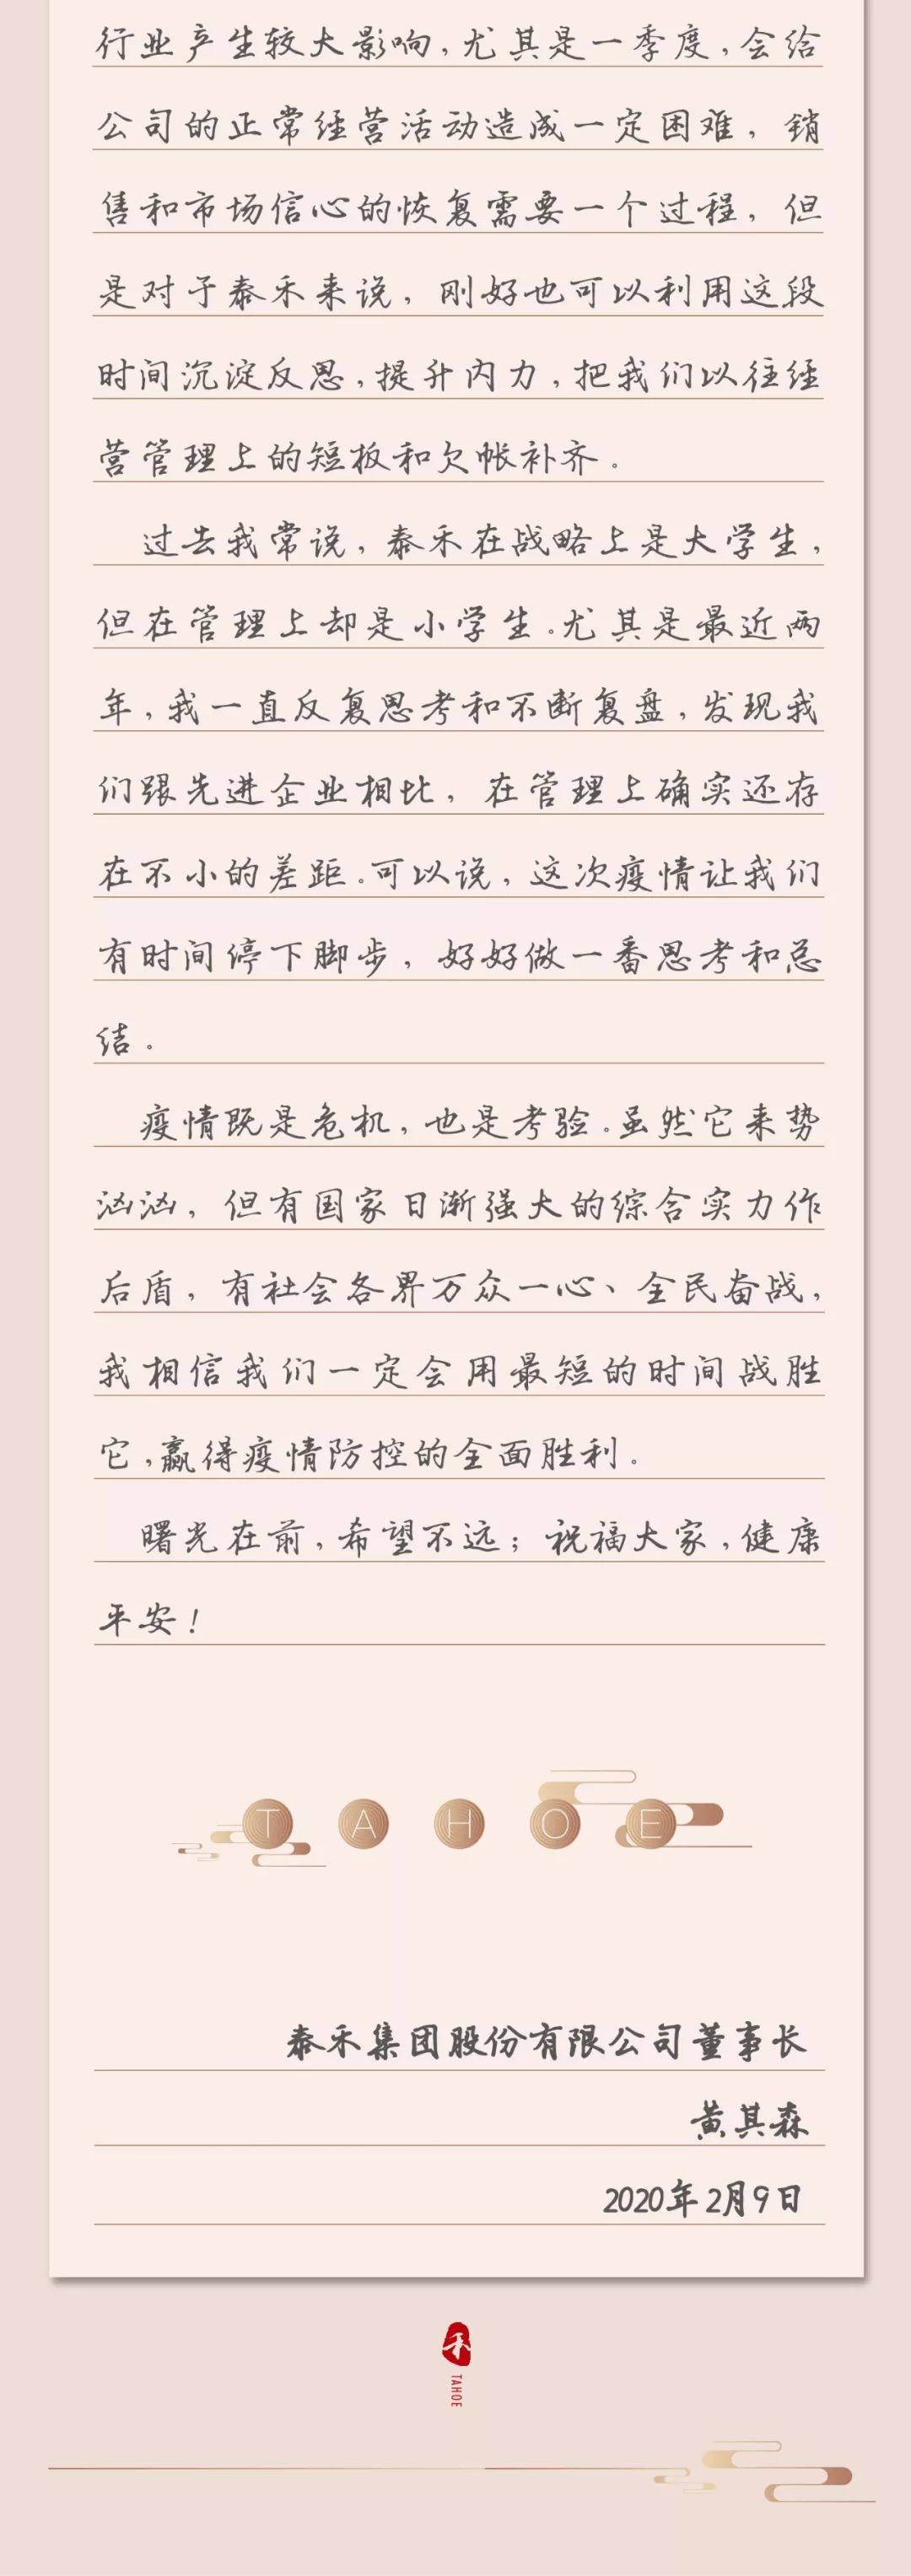 行业产生较大影响,尤其是一季度,会给
公司的正常经营活动造成一定困难,销
售和市场信心的恢复需要一个过程,但
是对于泰禾来说,刚好也可以利用这段
时间沉淀反思,提升内力,把我们以往经
营管理上的短板和欠帐补齐。
过去我常说,泰禾在战略上是大学生,
但在管理上却是小学生。尤其是最近两
年,我一直反复思考和不断复盘,发现我
们跟先进企业相比,在管理上确实还存
在不小的差距。可以说,这次疫情让我们
有时间停下脚步,好好做一番思考和总
结。
疫情既是危机,也是考验。虽然它来势
汹汹,但有国家日渐强大的综合实力作
后盾,有社会各界万众一心、全民奋战,
我相信我们一定会用最短的时间战胜
它,赢得疫情防控的全面胜利。
曙光在前,希望不远;祝福大家,健康
平安!
TAHOE
泰禾集团股份有限公司董事长
黄其森
2020年2月9日
禾
TAHOE